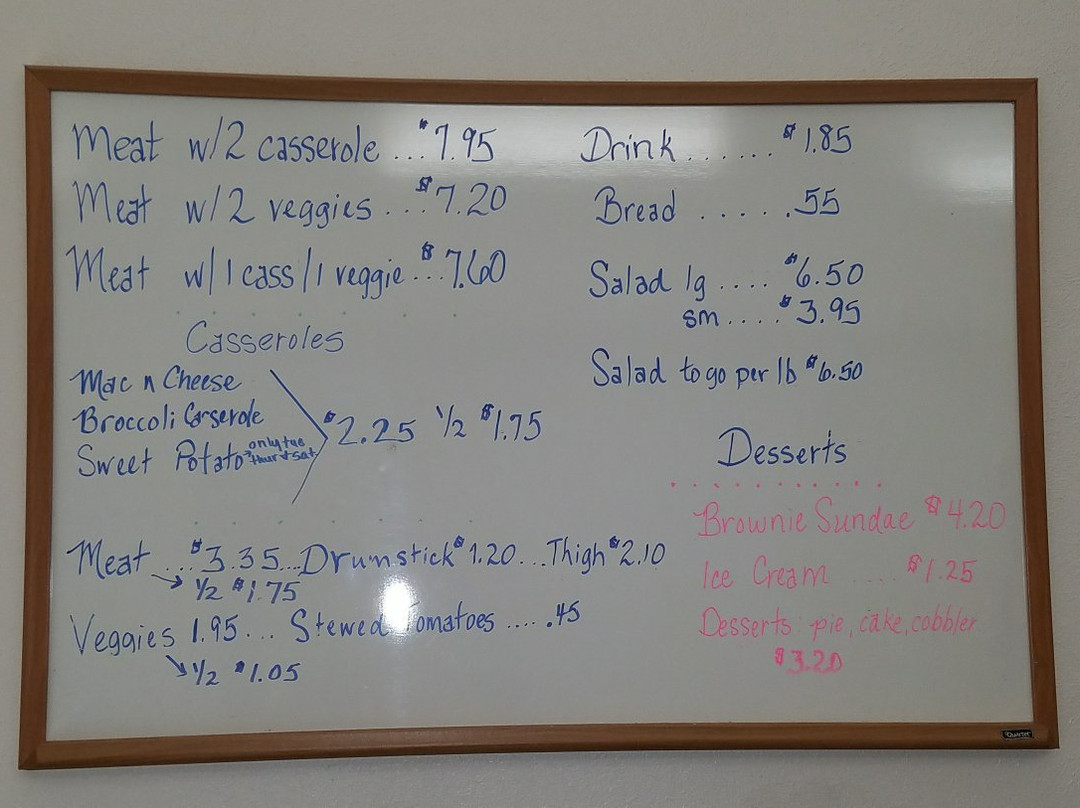 Meat w/2 casserole ... $7.95
Meat w/2 veggies ... $7.20
Meat w/1 cass/1 veggie ... $7.60
Casseroles
Mac n Cheese
Broccoli Casserole
Sweet Potato only tue
thur & sat
$2.25 1/2 $1.75
Meat ... $3.35 ... Drumstick $1.20 ... Thigh $2.10
1/2 $1.75
Veggies 1.95 ... Stewed Tomatoes .... .45
1/2 $1.05
Drink ...... $1.85
Bread ..... .55
Salad lg .... $6.50
sm .... $3.95
Salad to go per lb $6.50
Desserts
Brownie Sundae $4.20
Ice Cream .... $1.25
Desserts: pie, cake, cobbler
$3.20
Quartet